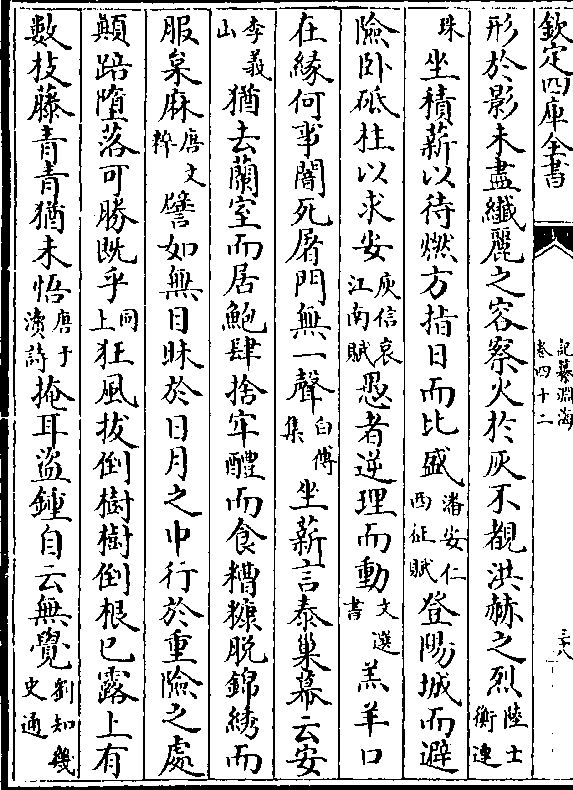 欽定四庫全書
記纂淵海
卷四十二
三十八
形於影未盡纖麗之容察火於灰不覩洪赫之烈陸士衡連
珠坐積薪以待燃方指日而比盛潘安仁西征賦登陽城而避
險卧砥柱以求安庾信哀江南賦愚者逆理而動文選書羔羊口
在緣何事闇死屠門無一聲白傅集坐薪言泰巢幕云安
李義山猶去蘭室而居鮑肆捨牢醴而食糟糠脱錦綉而
服枲麻唐文粹譬如無目昧於日月之中行於重險之處
顛踣墮落可勝既乎同上狂風拔倒樹樹倒根已露上有
數枝藤青青猶未悟唐于濆詩掩耳盜鍾自云無覺劉知幾史通